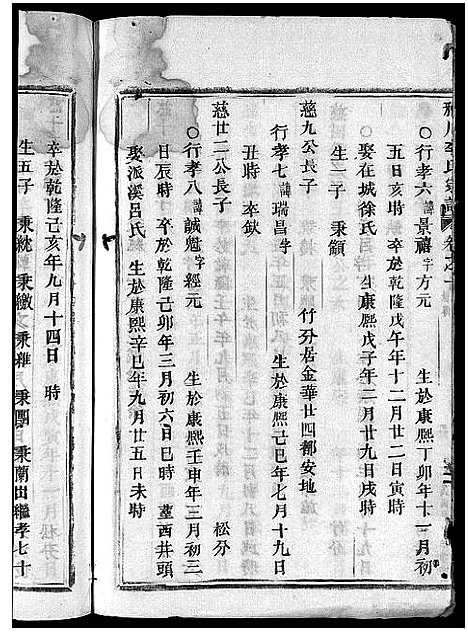 李氏宗譜 卷之十
〇行孝六 諱景禧 字方元 生於康熙丁卯年十二月初
五日亥時 卒於乾隆戊午年十二月廿二日寅時
娶在城徐氏 生康熙戊子年二月十九日戌時
生一子 秉顓
慈九公長子 竹分居金華廿四都安地
行孝七 諱瑞昌 字 生於康熙己巳年七月十九日
丑時 卒缺
慈廿二公長子 松分
〇行孝八 諱誠魁 字經元 生於康熙壬申年三月初三
日辰時 卒於乾隆己卯年三月初六日巳時 塟西井頭
娶派溪呂氏 生於康熙辛巳年九月廿五日未時
卒於乾隆己亥年九月十四日 時
生五子 秉統 秉繳 秉雅 秉團 秉蘭出繼孝七十